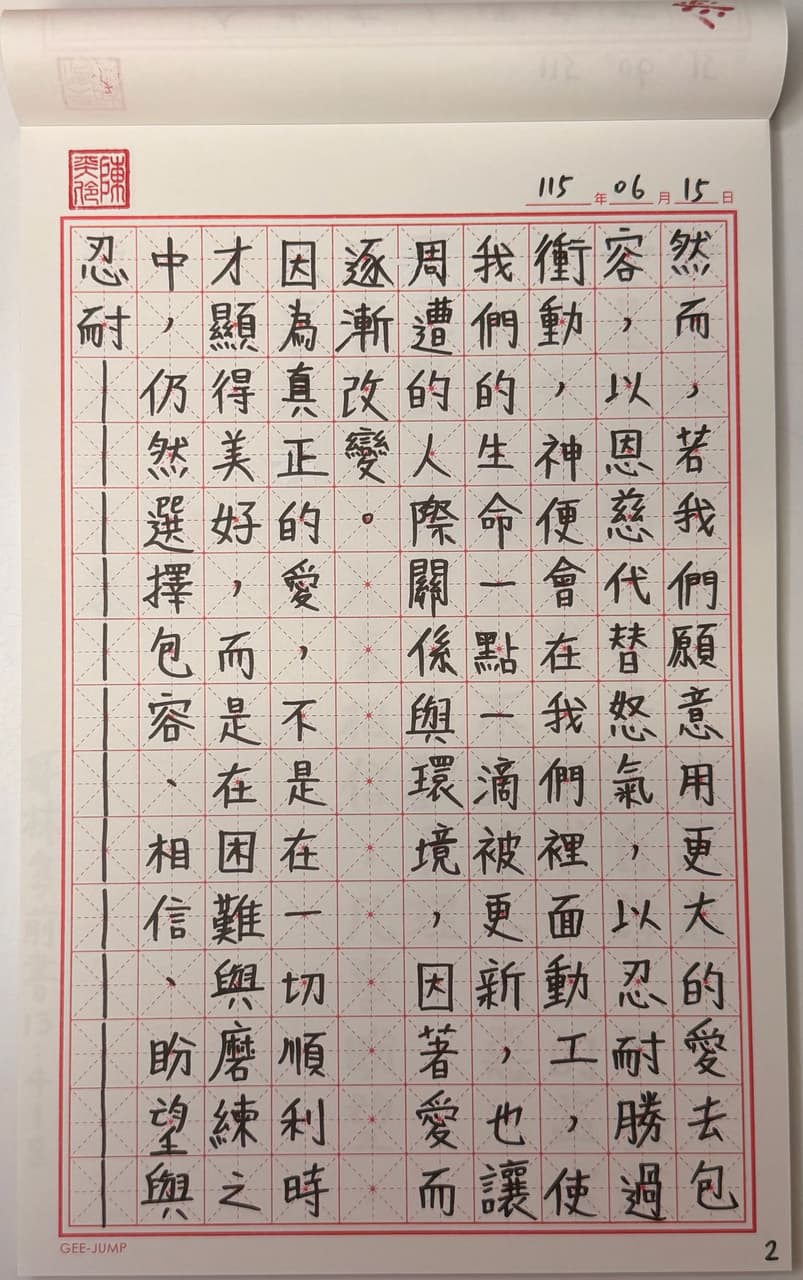 115年06月15日
然而，若我們願意用更大的愛去包
容，以恩慈代替怒氣，以忍耐勝過
衝動，神便會在我們裡面動工，使
我們的生命一點一滴被更新，也讓
周遭的人際關係與環境，因著愛而
逐漸改變。
因為真正的愛，不是在一切順利時
才顯得美好，而是在困難與磨練之
中，仍然選擇包容、相信、盼望與
忍耐
GEE-JUMP
2